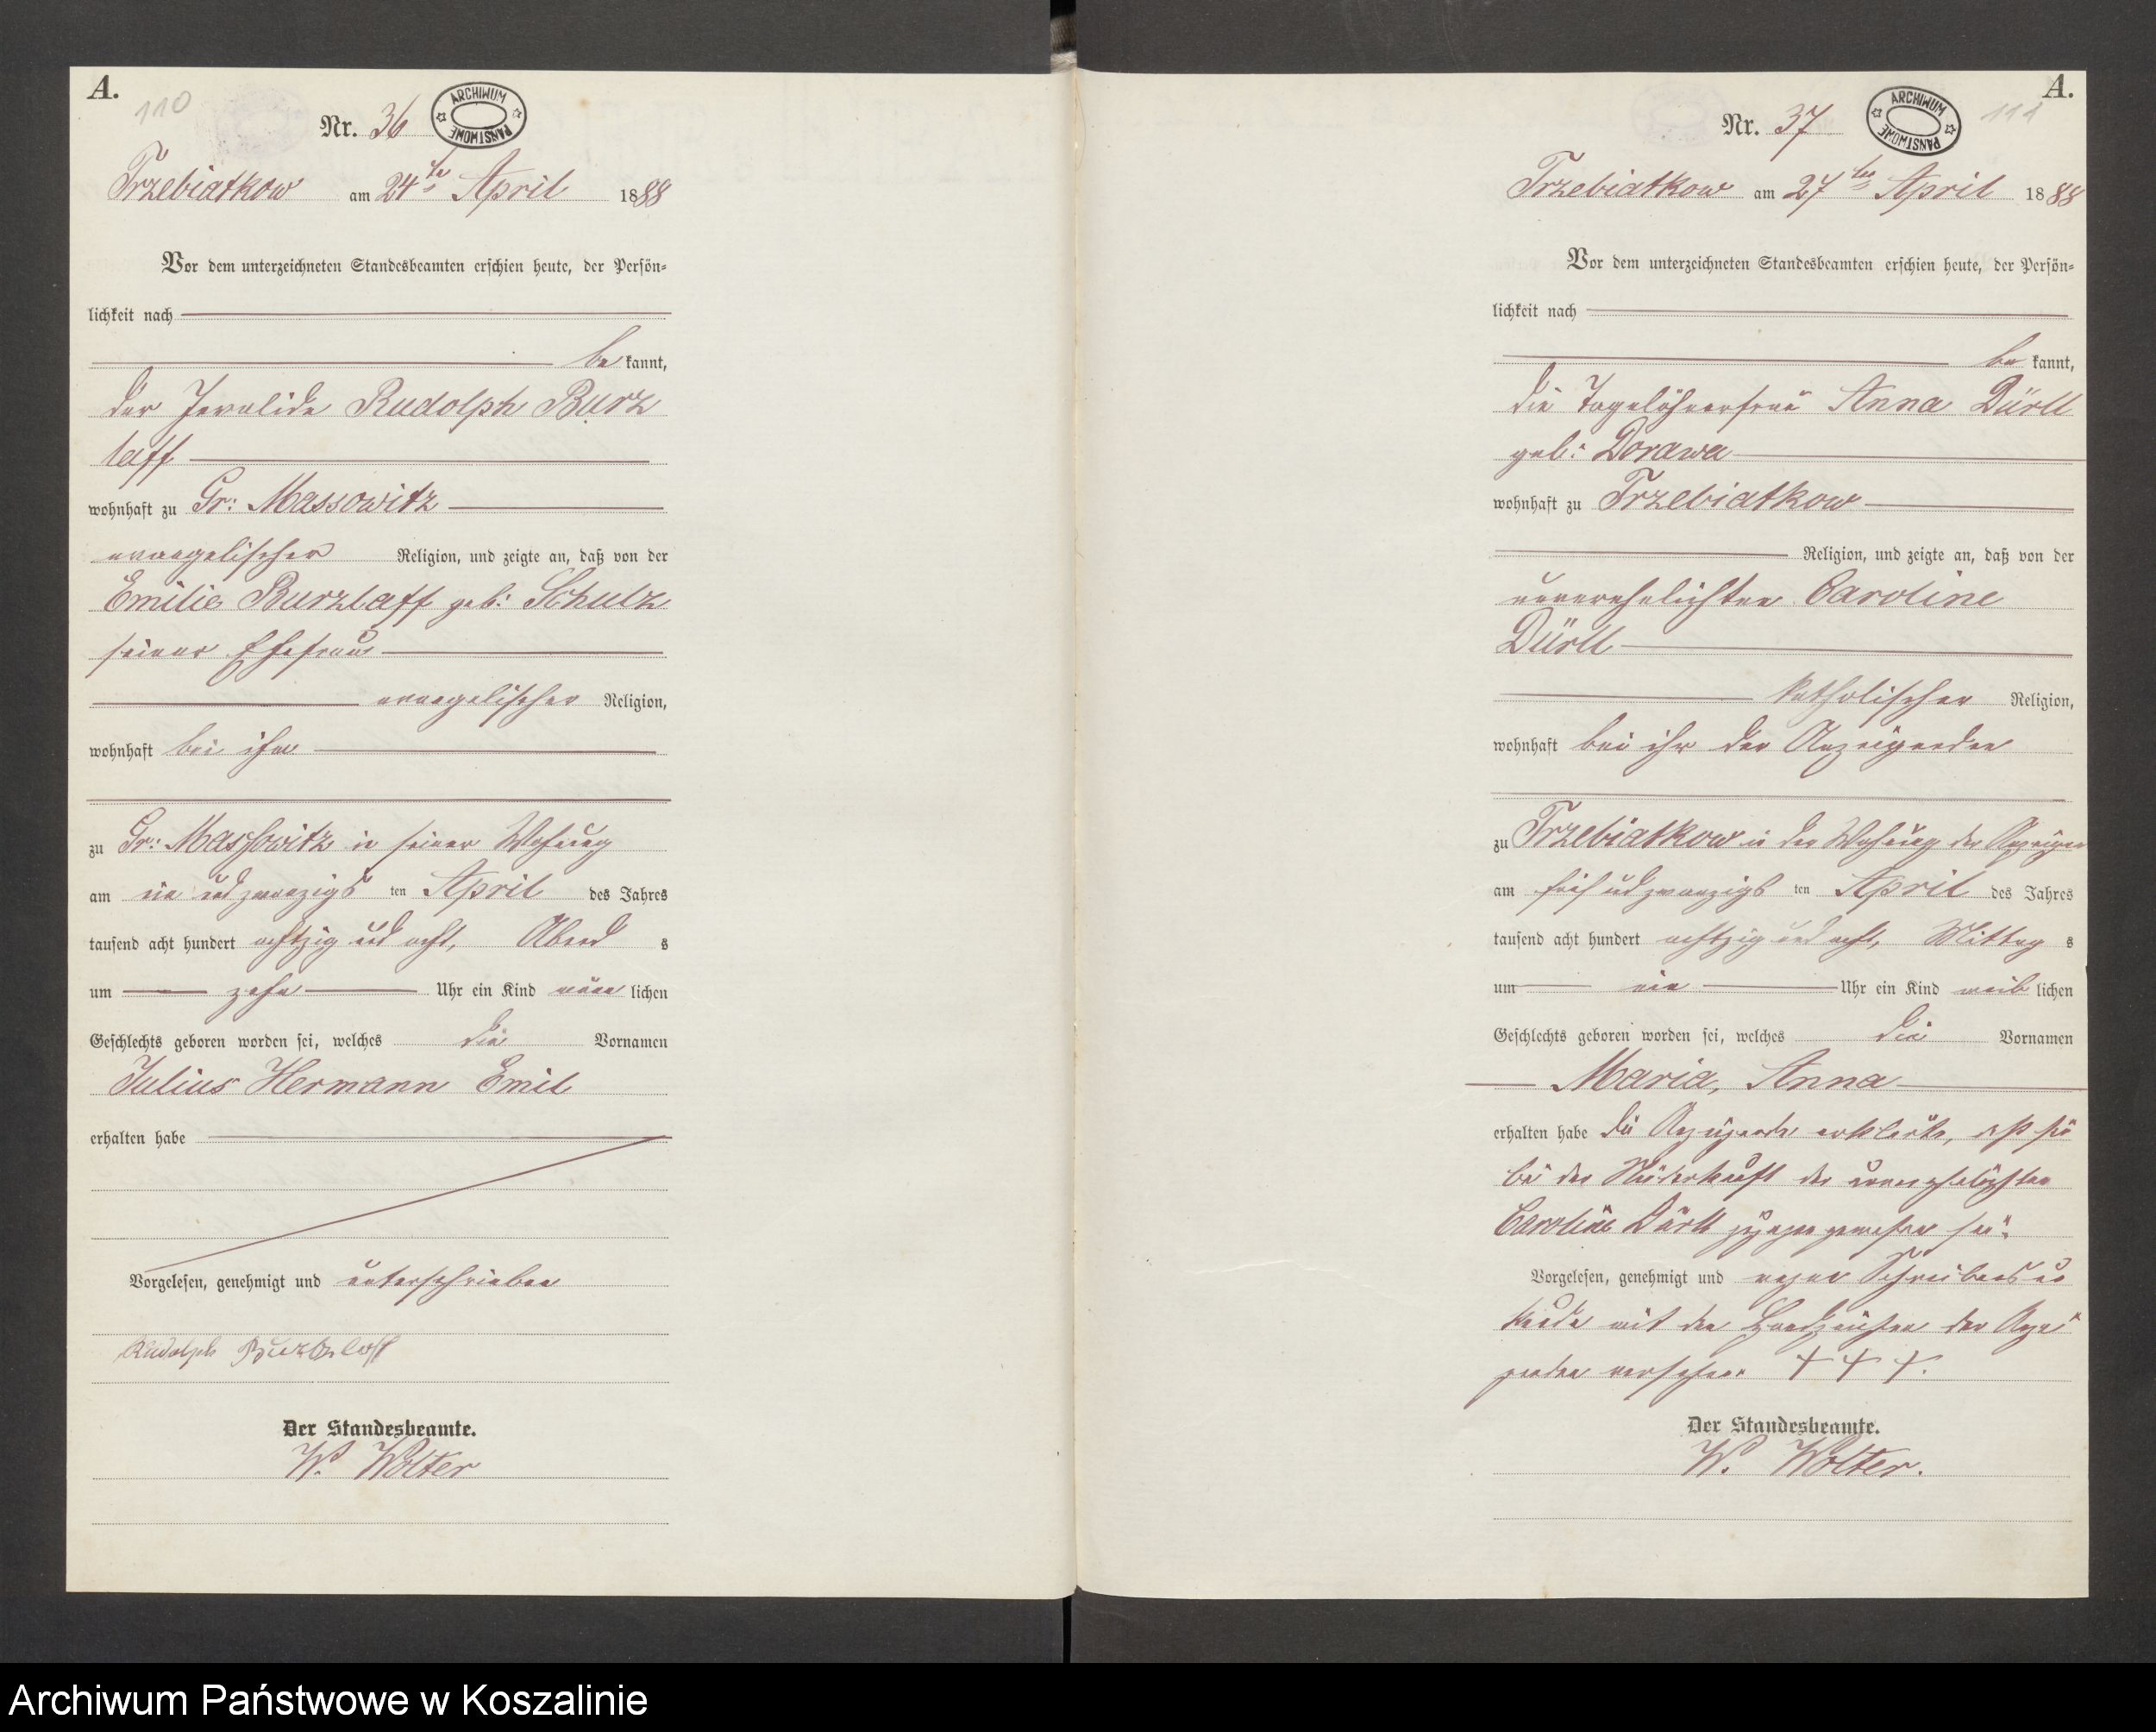 A.
110
Nr. 36
ARCHIWUM PAŃSTWOWE
Trzebiatkow am 24ten April 1888
Vor dem unterzeichneten Standesbeamten erschien heute, der Persön=
lichkeit nach
be kannt,
der Invalide Rudolph Burz
laff
wohnhaft zu Gr: Massowitz
evangelischer Religion, und zeigte an, daß von der
Emilie Burzlaff geb: Schulz
seiner Ehefrau
evangelischer Religion,
wohnhaft bei ihm
zu Gr: Massowitz in seiner Wohnung
am ein und zwanzigs ten April des Jahres
tausend acht hundert achtzig und acht, Abend s
um zehn Uhr ein Kind männ lichen
Geschlechts geboren worden sei, welches die Vornamen
Julius Hermann Emil
erhalten habe
Vorgelesen, genehmigt und unterschrieben
Rudolph Burzlaff
Der Standesbeamte.
W. Wolter
A.
111
Nr. 37
ARCHIWUM PAŃSTWOWE
Trzebiatkow am 27ten April 1888
Vor dem unterzeichneten Standesbeamten erschien heute, der Persön=
lichkeit nach
be kannt,
die Tagelöhnerfrau Anna Dürll
geb: Dorawa
wohnhaft zu Trzebiatkow
Religion, und zeigte an, daß von der
unverehelichten Caroline
Dürll
katholischer Religion,
wohnhaft bei ihr der Anzeigenden
zu Trzebiatkow in der Wohnung der Anzeigen
am fünf und zwanzigs ten April des Jahres
tausend acht hundert achtzig und acht, Mittag s
um ein Uhr ein Kind weib lichen
Geschlechts geboren worden sei, welches die Vornamen
Maria, Anna
erhalten habe die Anzeigende erklärte, daß sie
bei der Niederkunft der unverehelichten
Caroline Dürll zugegen gewesen sei.
Vorgelesen, genehmigt und wegen Schreibensun
kunde mit den Handzeichen der Anzei
genden versehen. + + +.
Der Standesbeamte.
W. Wolter.
Archiwum Państwowe w Koszalinie